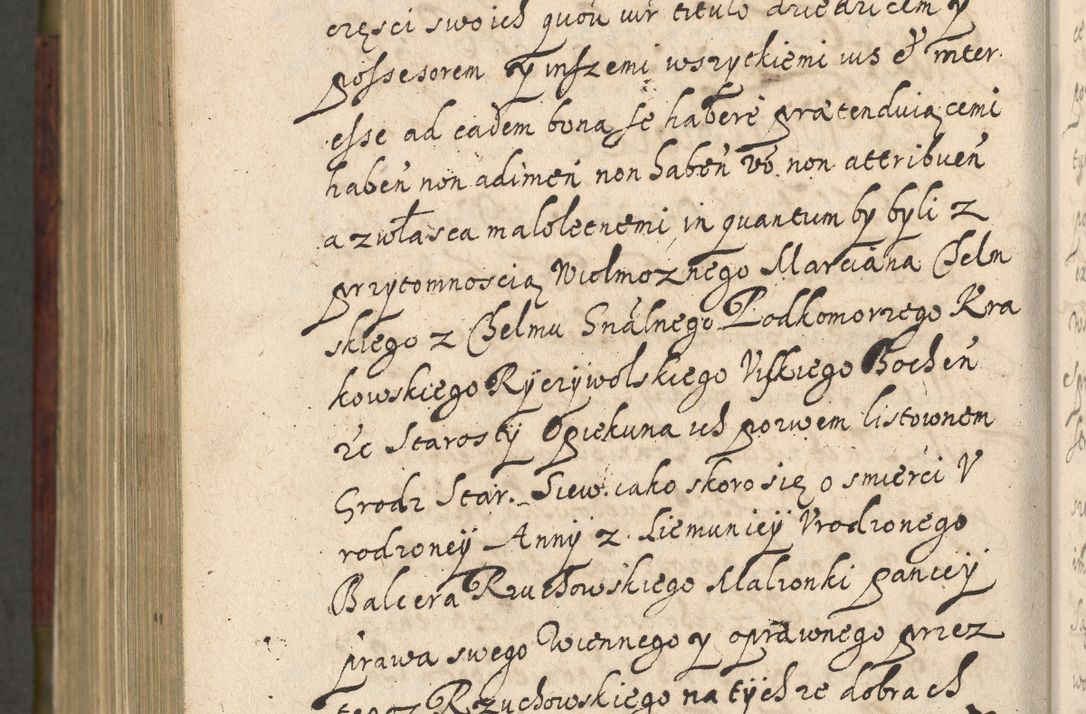 częsci swoich quou iur titulo dziedzicem y
possesorem y inszemi wszytkiemi ius & inter
esse ad eadem bona se habere prætenduiącemi
haben̄ non adimen̄ non haben̄ vo non attribuen̄
a zwłasca maloletnemi in quantum by byli z
przytomnoscią Wielmoznego Marciana Chelm
skiego z Chelmu Gnālnego Podkomorzego Kra
kowskiego Ryczywolskiego Uskiego Bochen̄
zc Starosty Opiekuna ich pozwem listownem
Grodz Star. Siew. iako skoro się o smierci V
rodzoney Anny z Siemuniey Vrodzonego
Balcera Rzuchowskiego Malzonki paniey
prawa swego Wiennego y oprawnego przez
tegoz Rzuchowskiego na tych ze dobrach